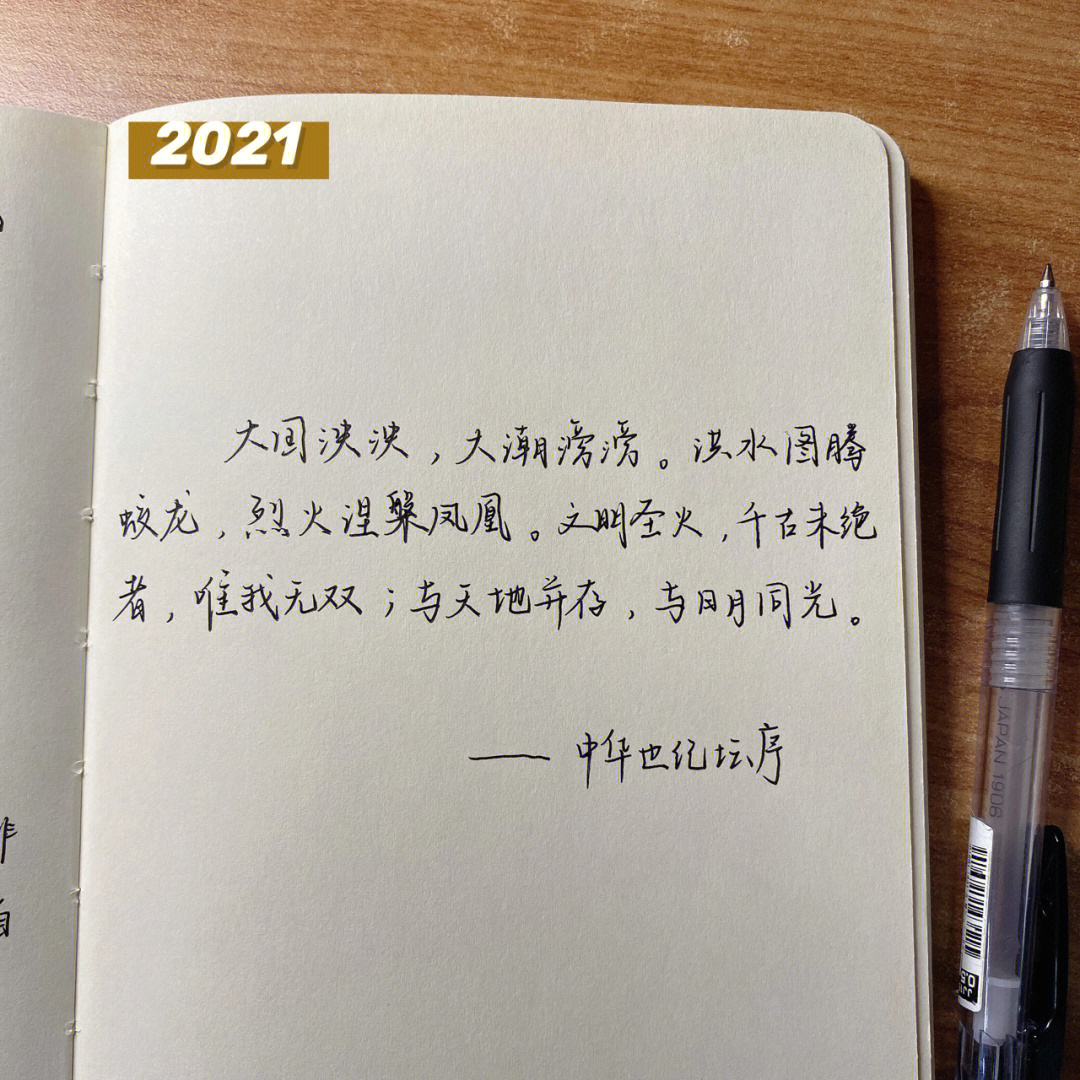 2021
大国泱泱，大潮滂滂。洪水图腾
蛟龙，烈火涅槃凤凰。文明圣火，千古未绝
者，唯我无双；与天地并存，与日月同光。
——中华世纪坛序
JAPAN 1906
0.5